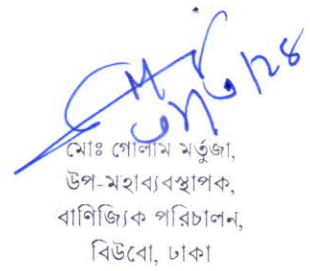 মোঃ গোলাম মর্তুজা,
উপ-মহাব্যবস্থাপক,
বাণিজ্যিক পরিচালন,
বিউবো, ঢাকা